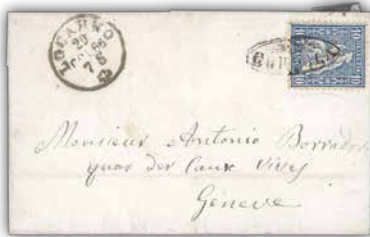 LOCARNO
20
66
7 S
10 10
Monsieur Antonio Borrador
quai des Eaux Vives
Genève